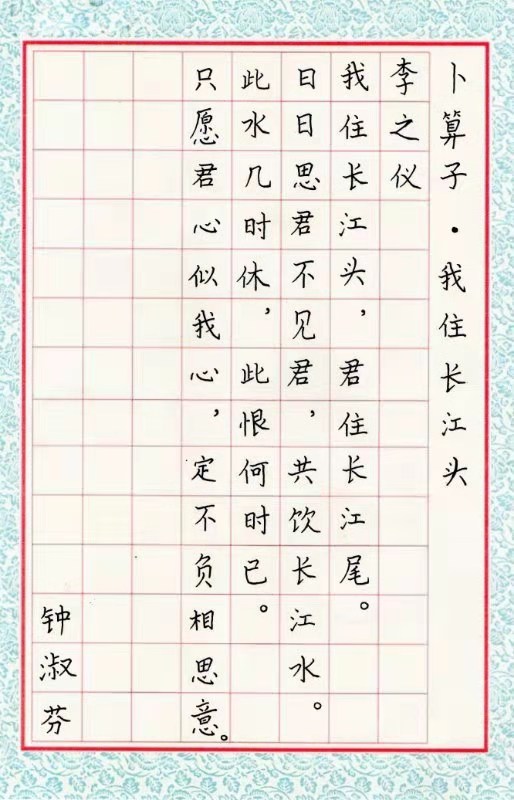 卜算子·我住长江头
李之仪
我住长江头，君住长江尾。
日日思君不见君，共饮长江水。
此水几时休，此恨何时已。
只愿君心似我心，定不负相思意。
钟淑芬